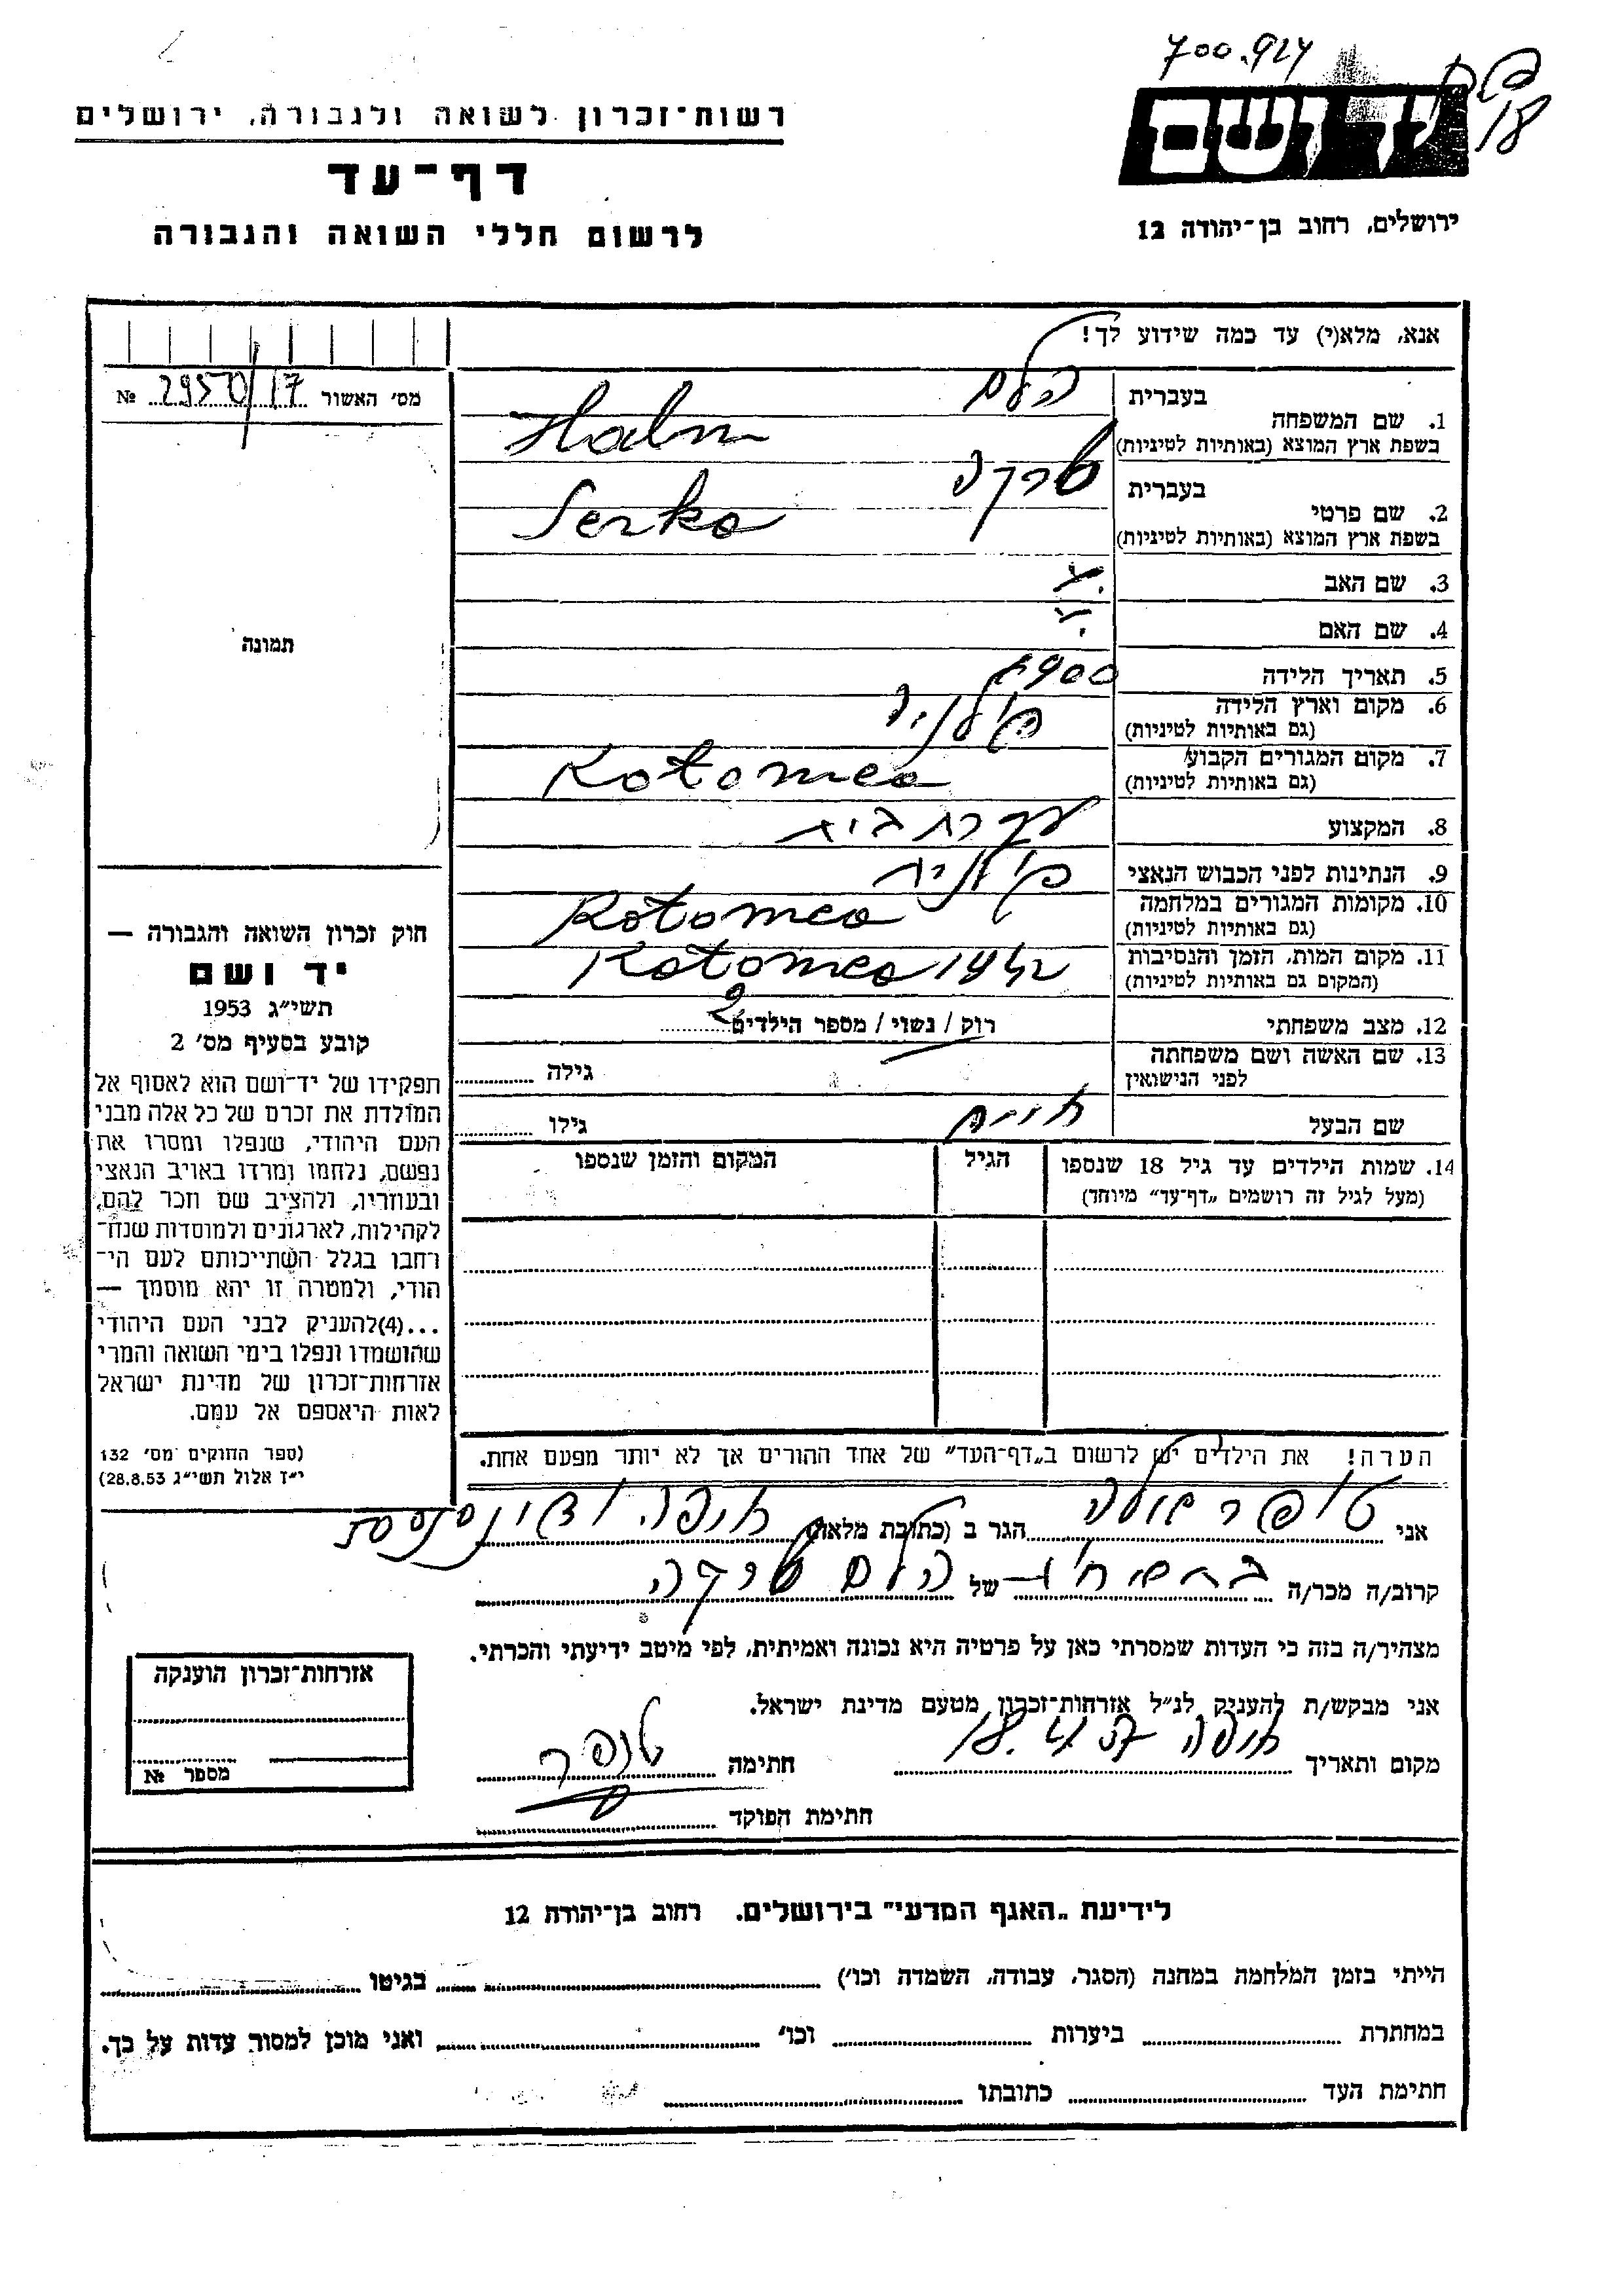 700.924
יד ושם
18
ירושלים, רחוב בן־יהודה 12
רשות־זכרון לשואה ולגבורה, ירושלים
דף־עד
לרשום חללי השואה והגבורה
אנא, מלא(י) עד כמה שידוע לך!
מס׳ האשור 2950/17 №
1. שם המשפחה בעברית הלם
בשפת ארץ המוצא (באותיות לטיניות) Halm
2. שם פרטי בעברית שרקה
בשפת ארץ המוצא (באותיות לטיניות) Serka
3. שם האב
4. שם האם
5. תאריך הלידה 1900
6. מקום וארץ הלידה
(גם באותיות לטיניות)
7. מקום המגורים הקבוע Kotomea
(גם באותיות לטיניות)
8. המקצוע עקרת בית
9. הנתינות לפני הכבוש הנאצי פולנית
10. מקומות המגורים במלחמה Kotomea
(גם באותיות לטיניות)
11. מקום המות, הזמן והנסיבות Kotomea 1942
(המקום גם באותיות לטיניות)
12. מצב משפחתי רוק / נשוי / מספר הילדים 2
13. שם האשה ושם משפחתה גילה
לפני הנישואין
שם הבעל חיים גילו
14. שמות הילדים עד גיל 18 שנספו הגיל המקום והזמן שנספו
(מעל לגיל זה רושמים „דף־עד” מיוחד)
הערה! את הילדים יש לרשום ב„דף־העד” של אחד ההורים אך לא יותר מפעם אחת.
תמונה
חוק זכרון השואה והגבורה —
יד ושם
תשי״ג 1953
קובע בסעיף מס׳ 2
תפקידו של יד־ושם הוא לאסוף אל
המולדת את זכרם של כל אלה מבני
העם היהודי, שנפלו ומסרו את
נפשם, נלחמו ומרדו באויב הנאצי
ובעוזריו, ולהציב שם וזכר להם,
לקהילות, לארגונים ולמוסדות שנח־
רחבו בגלל השתייכותם לעם הי־
הודי, ולמטרה זו יהא מוסמך —
...(4)להעניק לבני העם היהודי
שהושמדו ונפלו בימי השואה והמרי
אזרחות־זכרון של מדינת ישראל
לאות היאספם אל עמם.
(ספר החוקים מס׳ 132
י״ז אלול תשי״ג 28.8.53)
אני הגר ב (כתובת מלאה) חיפה
קרוב/ה מכר/ה של הלם שרקה
מצהיר/ה בזה כי העדות שמסרתי כאן על פרטיה היא נכונה ואמיתית, לפי מיטב ידיעתי והכרתי.
אני מבקש/ת להעניק לנ״ל אזרחות־זכרון מטעם מדינת ישראל.
מקום ותאריך חיפה 18.4.57 חתימה
חתימת הפוקד
אזרחות־זכרון הוענקה
מספר №
לידיעת „האגף המדעי” בירושלים, רחוב בן־יהודה 12
הייתי בזמן המלחמה במחנה (הסגר, עבודה, השמדה וכו׳) בגיטו
במחתרת ביערות וכו׳ ואני מוכן למסור עדות על כך.
חתימת העד כתובתו